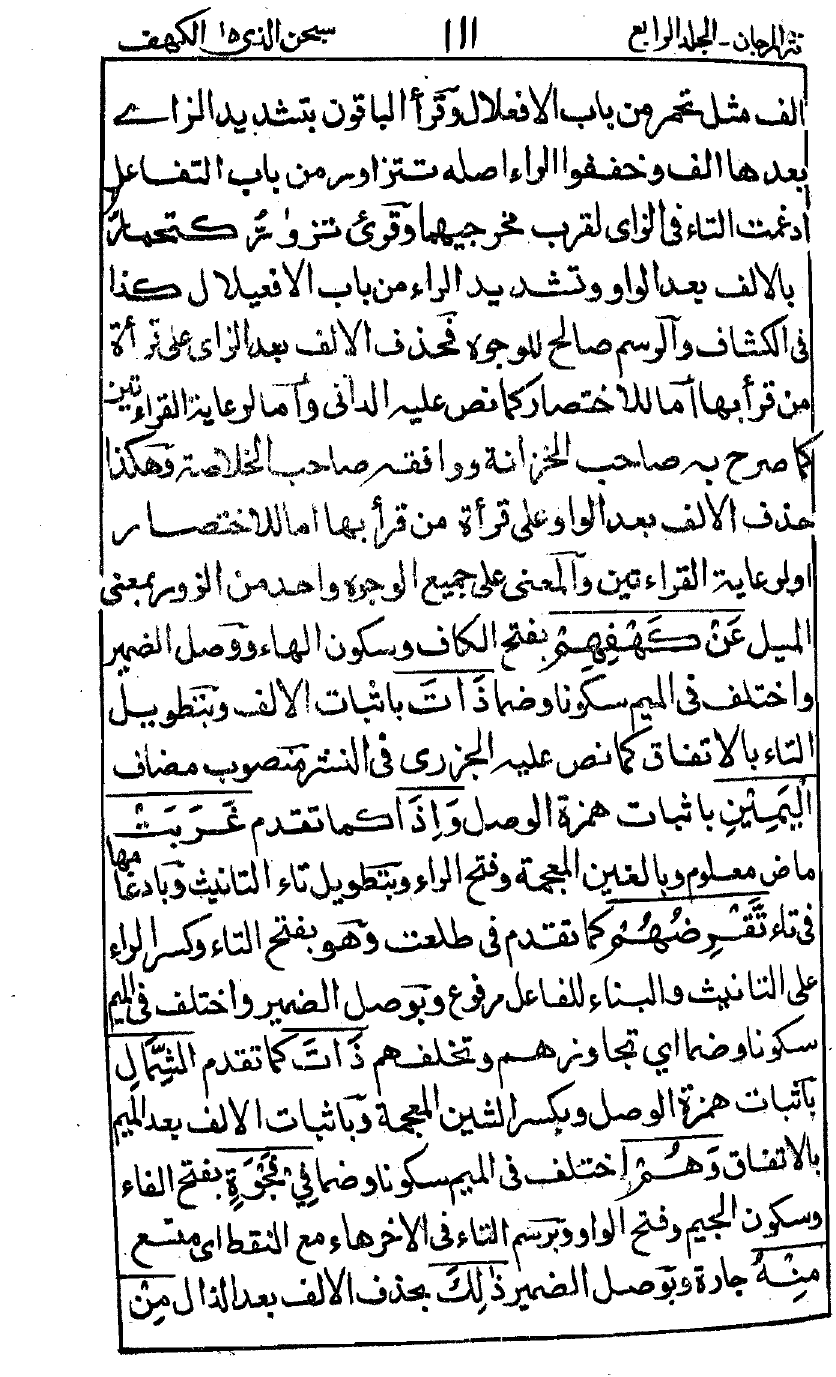 نثر المرجان - المجلد الرابع ١١١ سبحن الذى ١٥ الكهف
الف مثل تحمر من باب الافعلال وقرأ الباقون بتشديد الزاے
بعدها الف وخففوا الراء اصله تتزاور من باب التفاعل
ادغمت التاء فى الزاى لقرب مخرجيهما وقرئ تزوٰرُّ كتحمارّ
بالالف بعد الواو وتشديد الراء من باب الافعيلال كذا
فى الكشاف والرسم صالح للوجوه فحذف الالف بعد الزاى على قرأة
من قرأ بها أما للاختصار كما نص عليه الدانى وأما لرعاية القراءتين
كما صرح به صاحب الخزانة ووافقه صاحب الخلاصة وهكذا
حذف الالف بعد الواو على قرأة من قرأ بها اما للاختصار
اولرعاية القراءتين والمعنى على جميع الوجوه واحد من الزور بمعنى
الميل عَنْ كَهْفِهِمْ بفتح الكاف وسكون الهاء ووصل الضمير
واختلف فى الميم سكونا وضما ذَاتَ باثبات الالف وبتطويل
التاء بالاتفاق كما نص عليه الجزرى فى النشر منصوب مضاف
الْيَمِيْنِ باثبات همزة الوصل وَاِذَا كما تقدم غَرَبَتْ
ماض معلوم وبالغين المعجمة وفتح الراء وبتطويل تاء التانيث وبادغامها
فى تاء تَّقْرِضُهُمْ كما تقدم فى طلعت وهو بفتح التاء وكسر الراء
على التانيث والبناء للفاعل مرفوع وبوصل الضمير واختلف فى الميم
سكونا وضما اى تجاوزهم وتخلفهم ذَاتَ كما تقدم الشِّمَالِ
باثبات همزة الوصل وبكسر الشين المعجمة وباثبات الالف بعد الميم
بالاتفاق وَهُمْ اختلف فى الميم سكونا وضما فِيْ فَجْوَةٍ بفتح الفاء
وسكون الجيم وفتح الواو وبرسم التاء فى الاخر هاء مع النقط اى متسع
مِنْهُ جارة وبوصل الضمير ذٰلِكَ بحذف الالف بعد الذال مِنْ